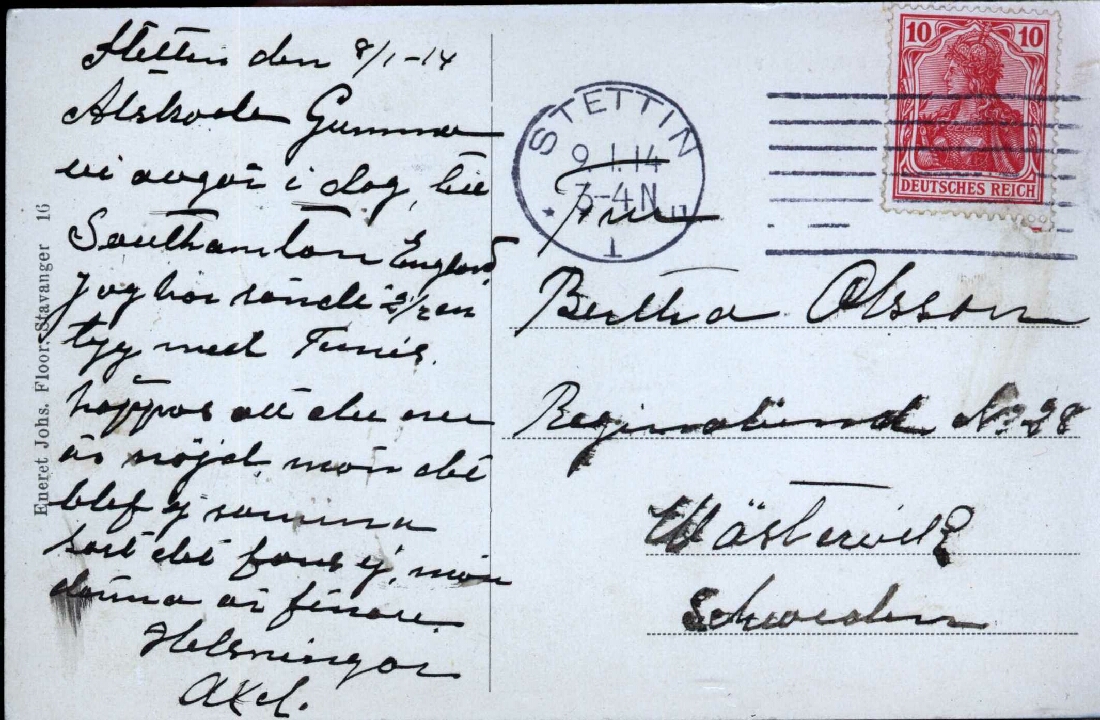 Stettin den 8/1-14
Älskade Gumma
vi avgår i dag till
Southamton England
Jag har sändt 2 1/2 en
tyg med Tunis.
hoppas att du nu
är nöjd, men det
blef ej samma
sort det fans ej, men
denna är finare.
Helsningar
Axel.
Eneret Johs. Floor. Stavanger 16
10 10
DEUTSCHES REICH
STETTIN
9.1.14
3-4.N
1
Fru
Bertha Olsson
No 28
Wästervik
Schweden